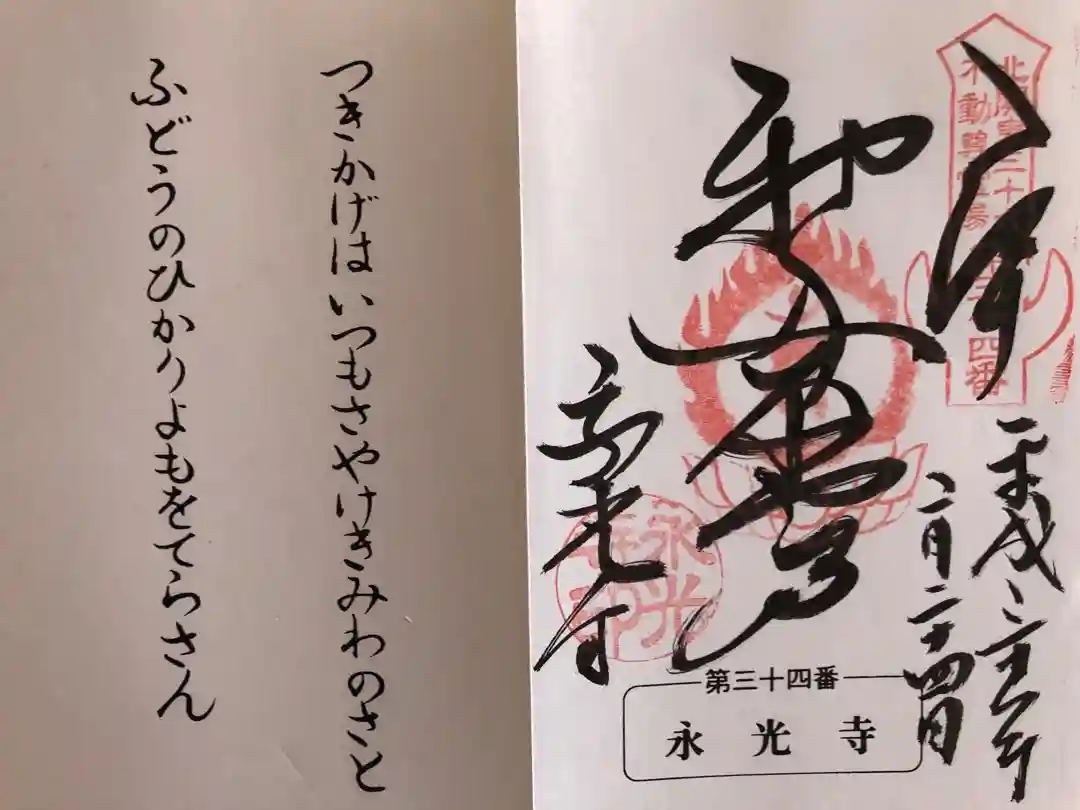 奉拝
平成三十年
二月二十四日
北関東三十六
不動尊霊場
第三十四番
永光寺
第三十四番
永光寺
つきかげはいつもさやけきみわのさと
ふどうのひかりよもをてらさん